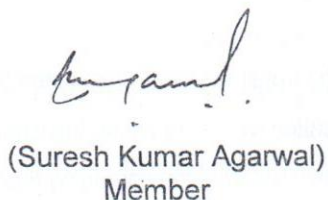 (Suresh Kumar Agarwal)
Member